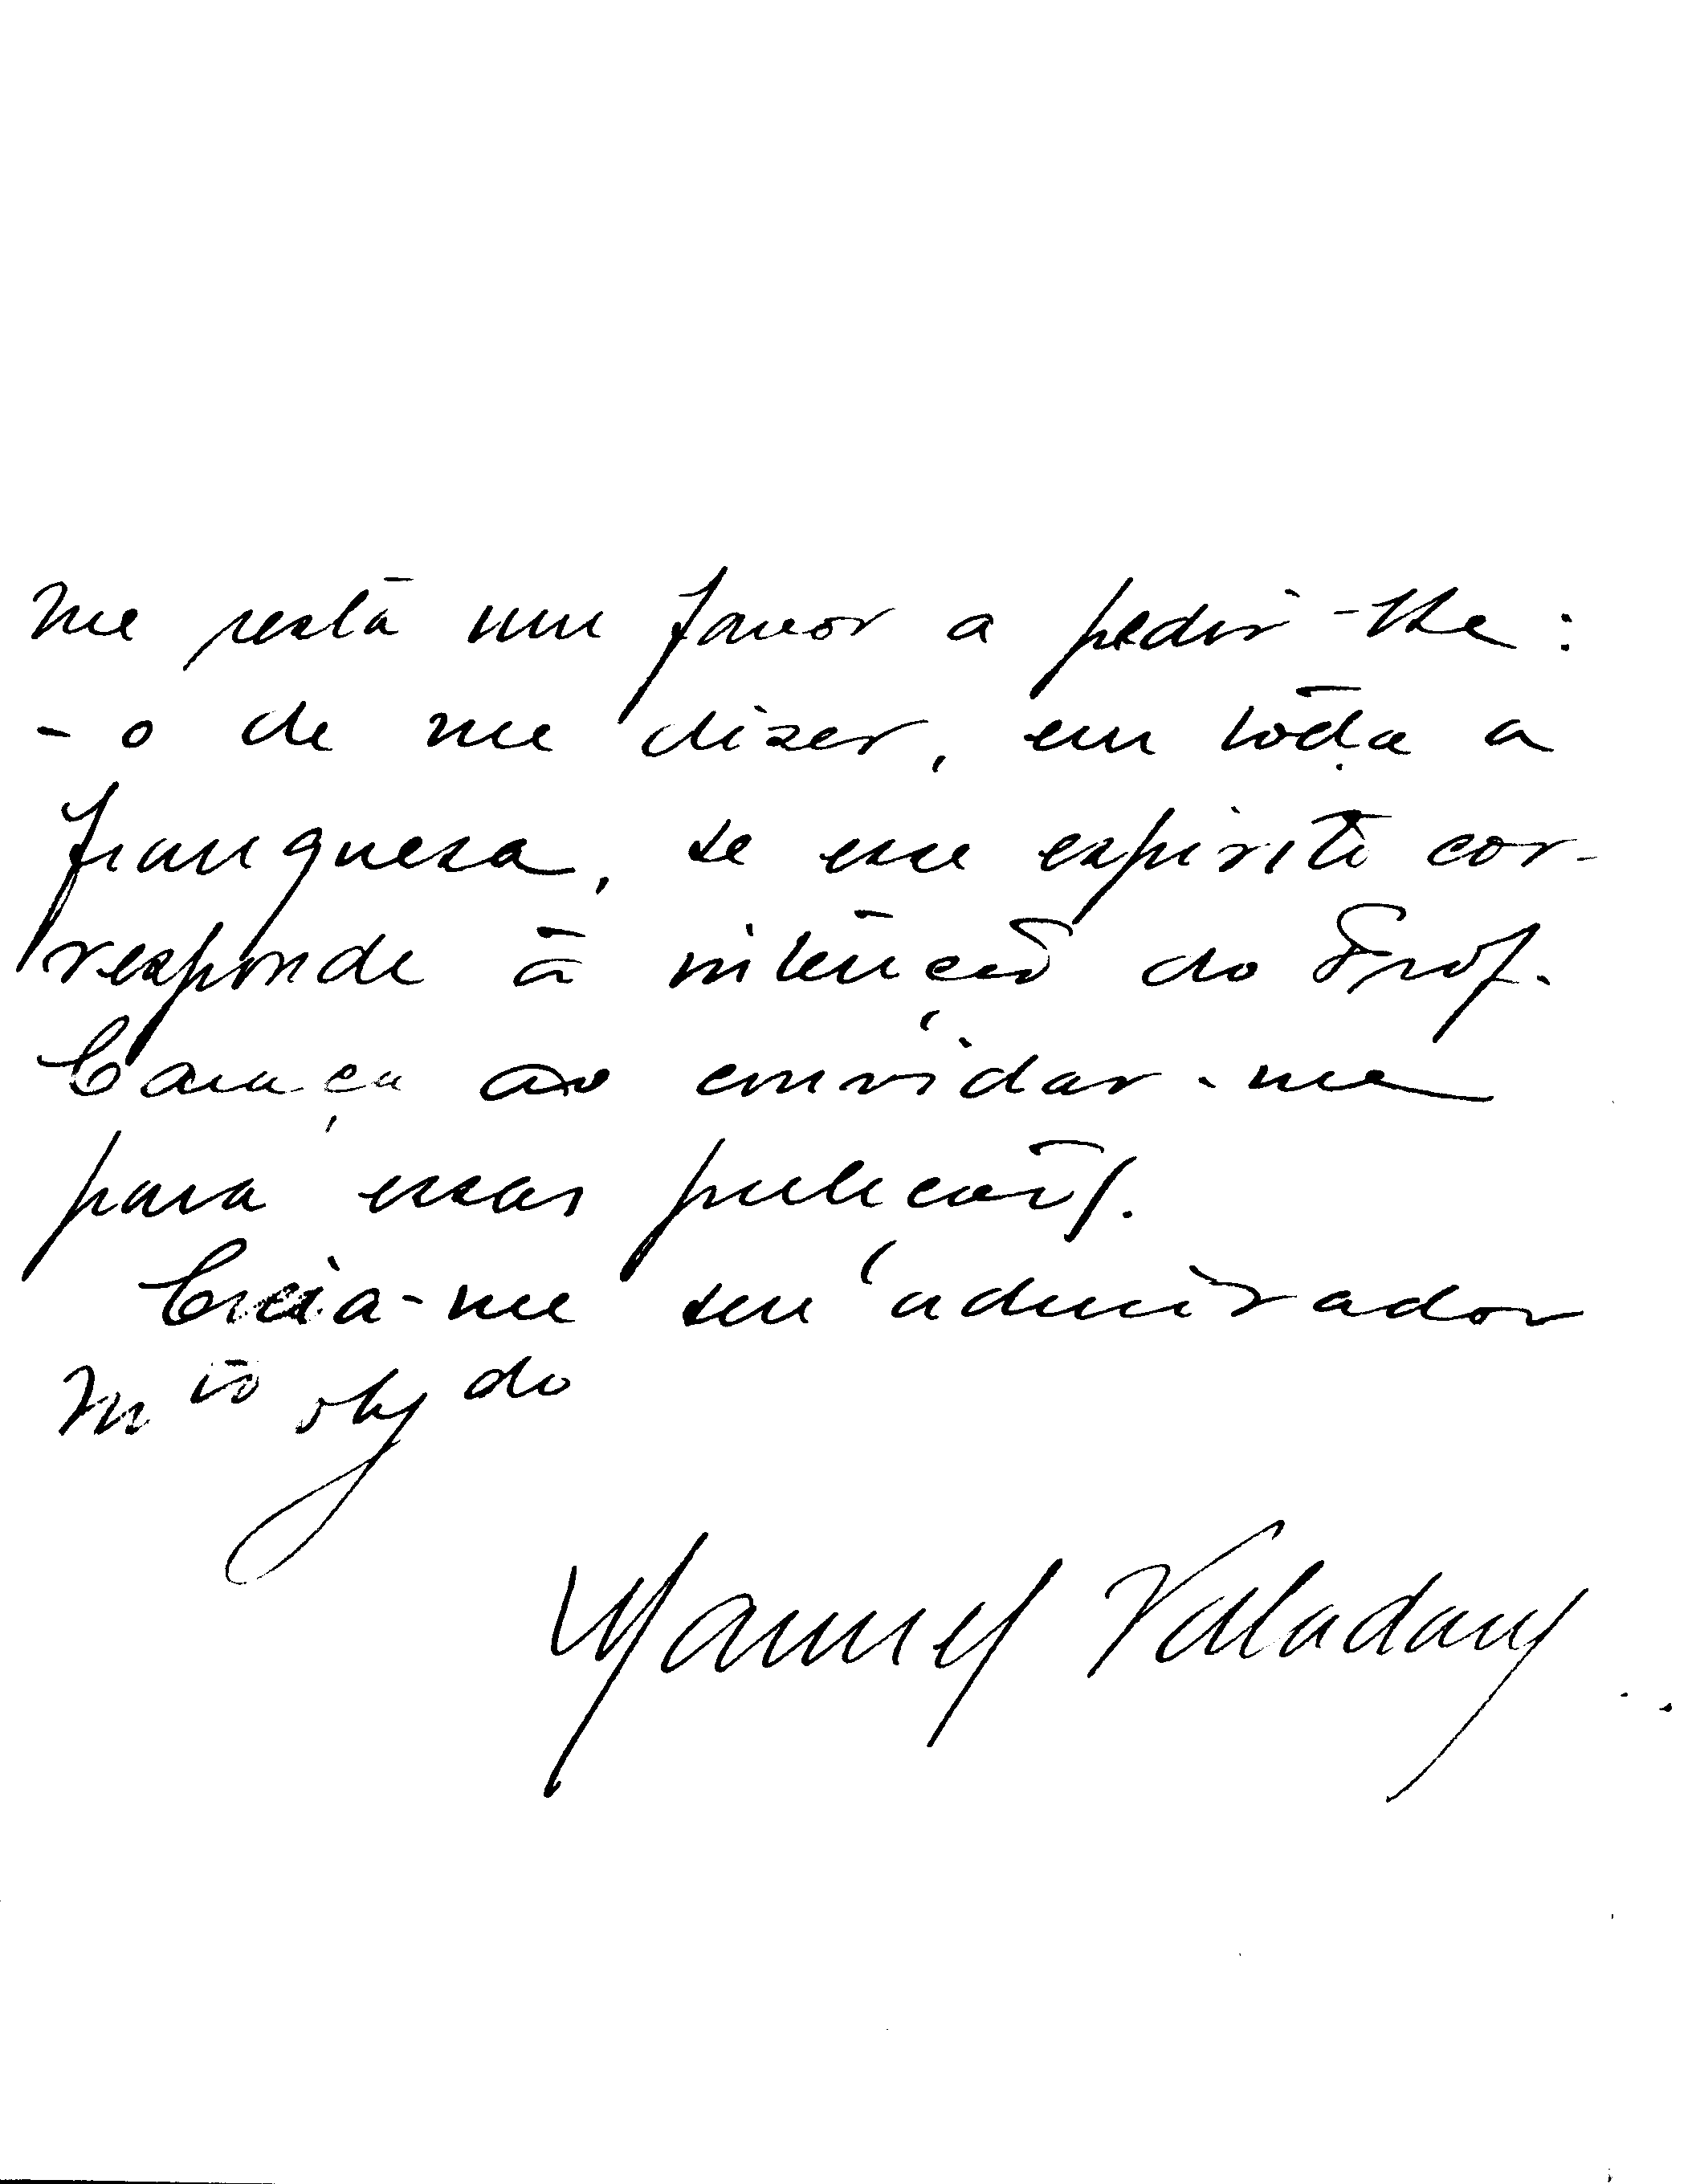 me resta um favor a pedir-lhe:
- o de me dizer, em toda a
franquesa, se esse espirito cor-
responde à intenção do Prof.
Caraça ao convidar-me
para essas prelecções.
Creia-me seu admirador
Mto obgdo
Manuel Valadares